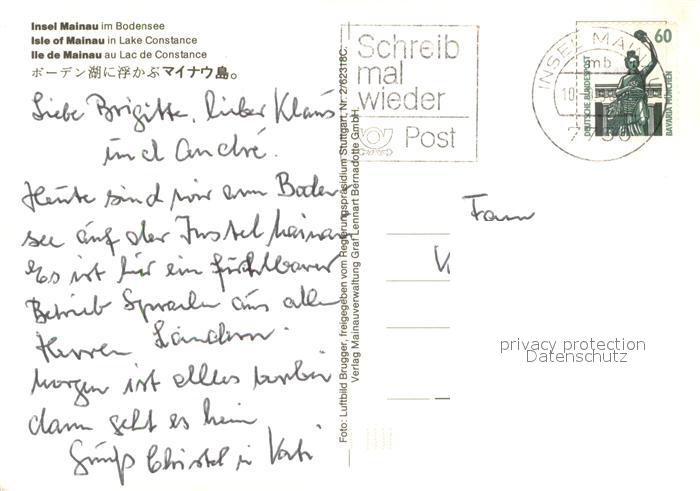 Insel Mainau im Bodensee
Isle of Mainau in Lake Constance
Ile de Mainau au Lac de Constance
ボーデン湖に浮かぶマイナウ島。
Liebe Brigitte, lieber Klaus
und André.
Heute sind wir am Boden
see auf der Insel Mainau
Es ist hir ein fürchtbarer
Betrieb Sprachen aus allen
Herren Ländern.
Morgen ist alles vorbei
dann geht es heim
Gruß Christel u Kati
Foto: Luftbild Brugger, freigegeben vom Regierungspräsidium Stuttgart, Nr. 2/62318C.
Verlag Mainauverwaltung Graf Lennart Bernadotte GmbH.
Schreib
mal
wieder
Post
INSEL MAINAU
mb
10
60
DEUTSCHE BUNDESPOST
BAVARIA MÜNCHEN
Fam
privacy protection
Datenschutz